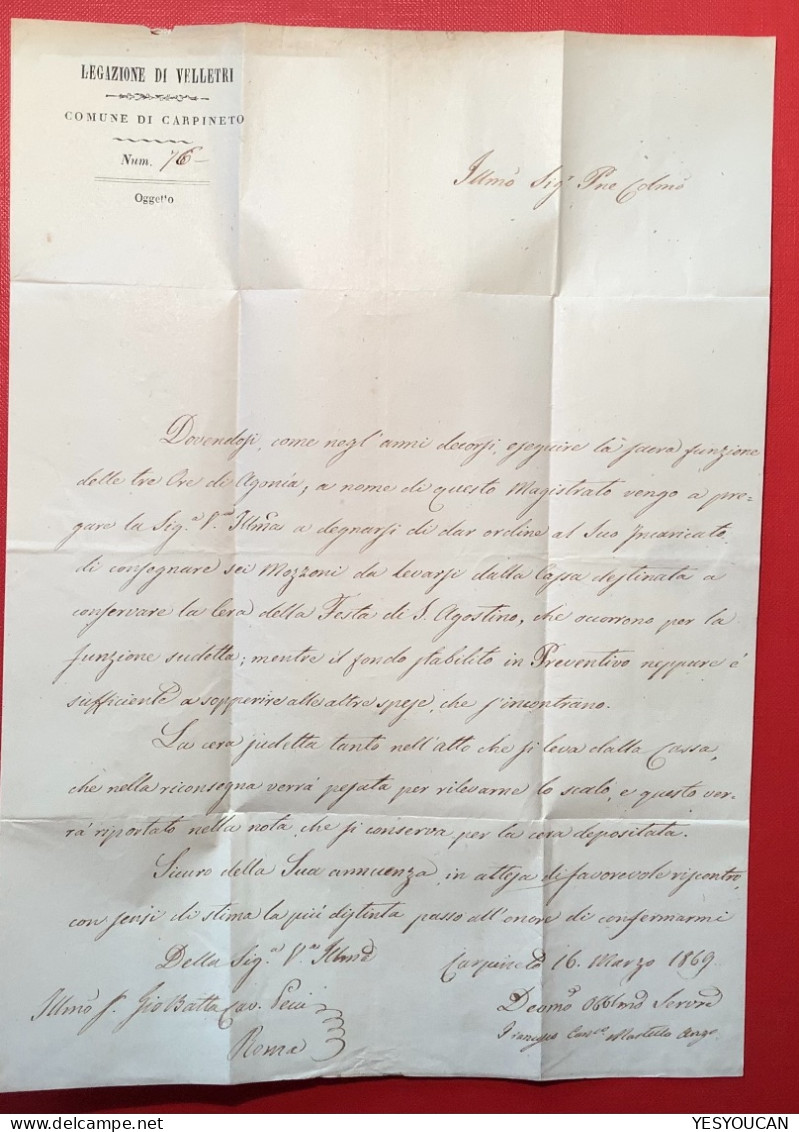 LEGAZIONE DI VELLETRI
COMUNE DI CARPINETO
Num. 76
Oggetto
Illmo Sigr Pne Colmo
Dovendosi, come negl'anni decorsi, eseguire la sacra funzione
delle tre Ore di Agonia, a nome di questo Magistrato vengo a pre-
gare la Sig.a V.a Illma a degnarsi di dar ordine al Suo Incaricato,
di consegnare sei Mozzoni da levarsi dalla Cassa destinata a
conservare la Cera della Festa di S. Agostino, che occorrono per la
funzione sudetta; mentre il fondo stabilito in Preventivo neppure é
sufficiente a sopperire alle altre spese, che s'incontrano.
La cera sudetta tanto nell'atto che si leva dalla Cassa,
che nella riconsegna verrá pesata per rilevarne lo scalo, e questo ver-
rá riportato nella nota, che si conserva per la cera depositata.
Sicuro della Sua annuenza, in attesa di favorevole riscontro,
con sensi di stima la piú distinta passo all'onore di confermarmi
Della Sig.a V.a Illma
Carpineto 16. Marzo 1869
Illmo S. Gio Batta Cav. Pecci
Devmo Obblmo Servre
Roma
Francesco Martello
YESYOUCAN